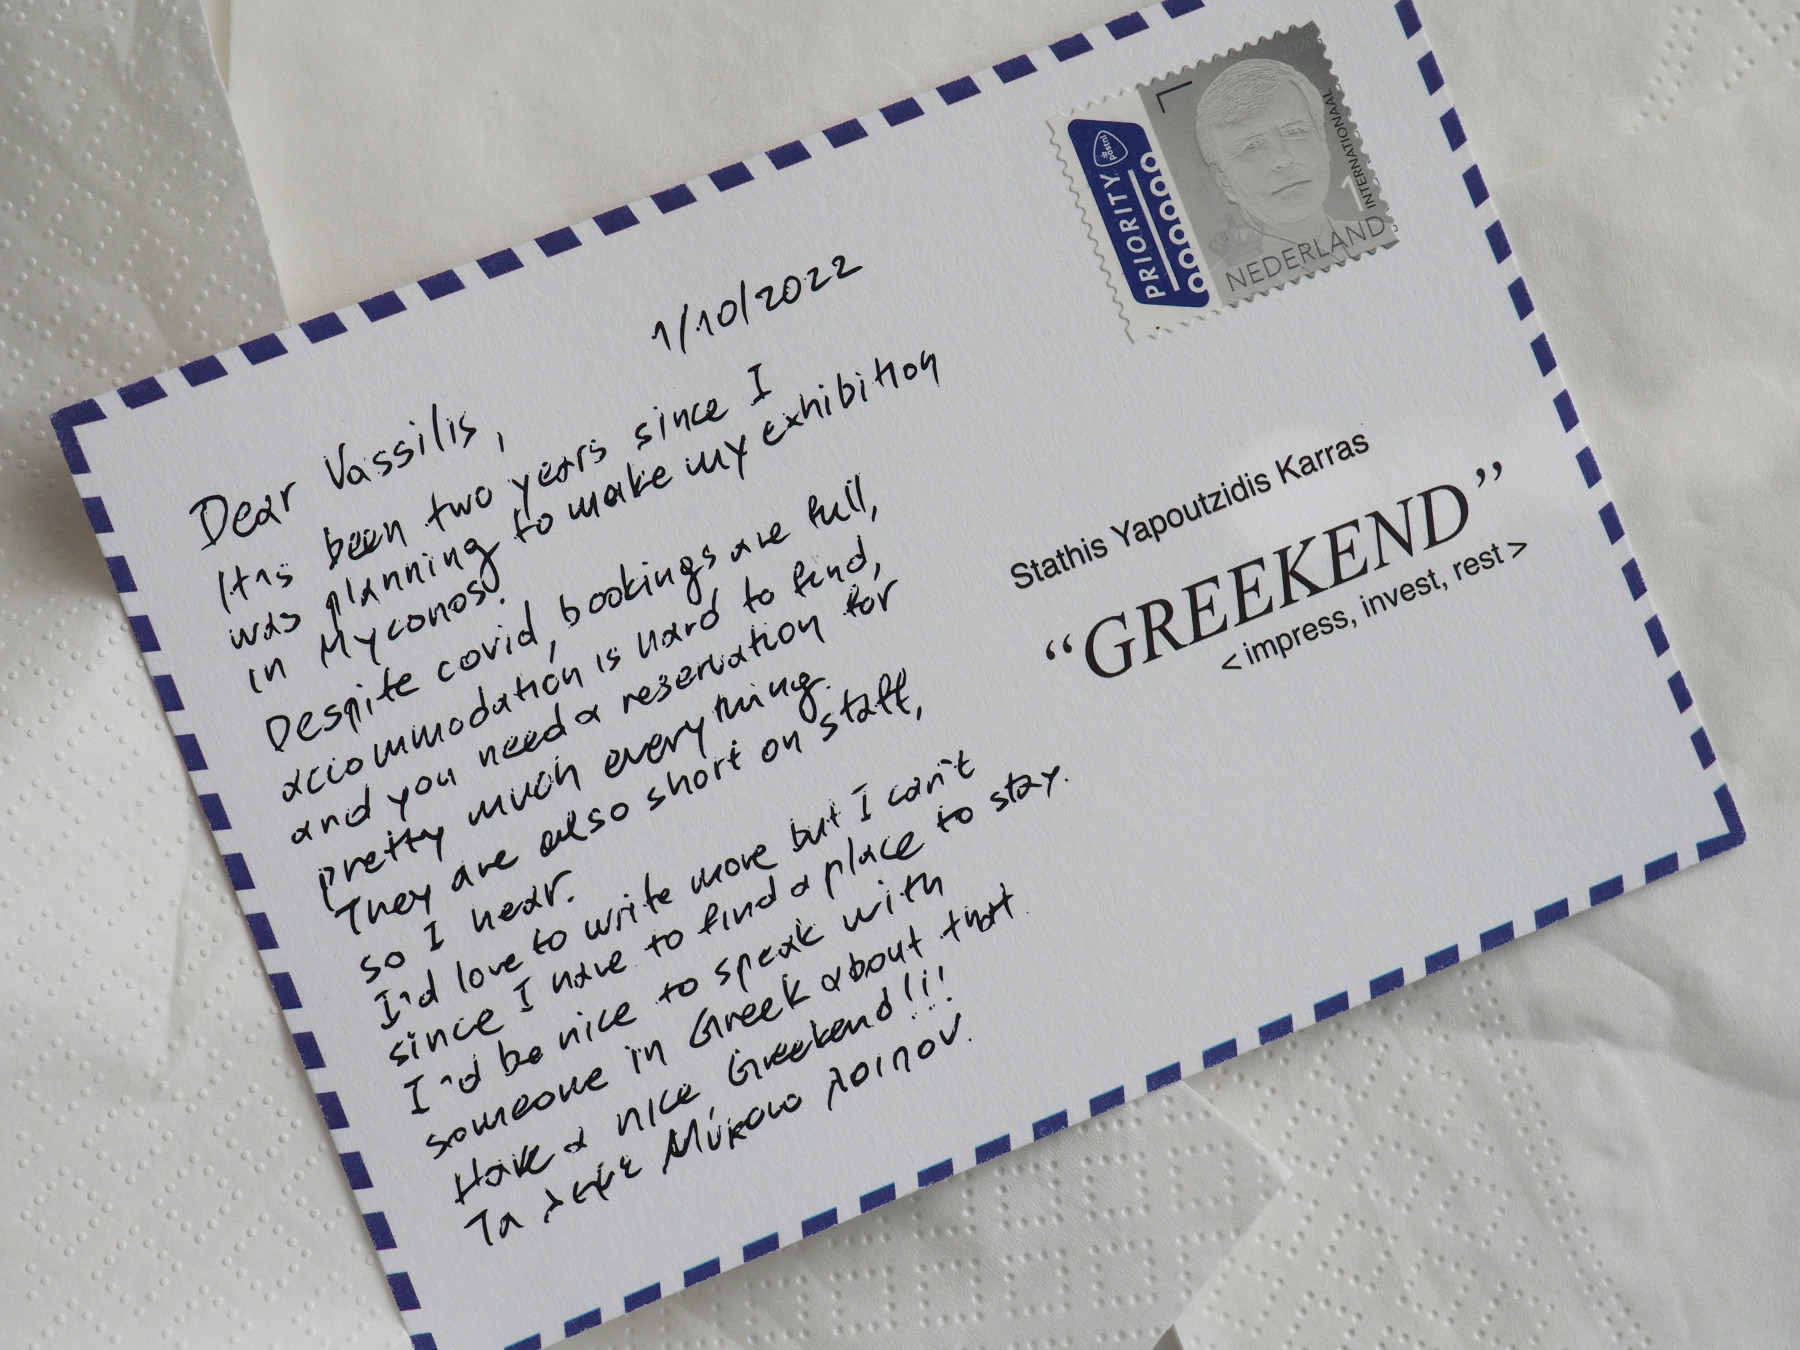 1/10/2022
Dear Vassilis,
It's been two years since I
was planning to make my exhibition
in Myconos.
Despite covid, bookings are full,
accommodation is hard to find,
and you need a reservation for
pretty much everything.
They are also short on staff,
so I hear.
I'd love to write more but I can't
since I have to find a place to stay.
I'd be nice to speak with
someone in Greek about that.
Have a nice Greekend!!!
Τα λέμε Μύκονο λοιπόν.
PRIORITY
postnl
2020
1
INTERNATIONAAL
NEDERLAND
Stathis Yapoutzidis Karras
“GREEKEND”
< impress, invest, rest >